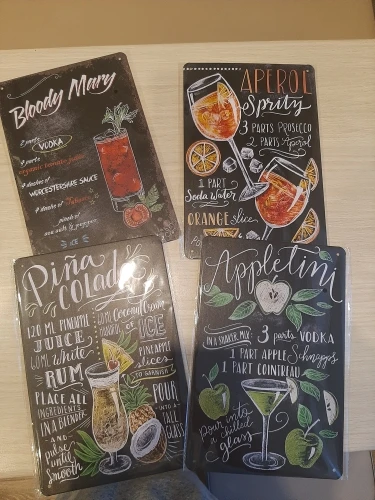 Bloody Mary
VODKA
3 parts
organic tomato juice
4 dashes of
WORCESTERSHIRE SAUCE
4 dashes of Tabasco
pinch of
sea salt & pepper
ICE
APEROL
Spritz
3 PARTS PROSECCO
2 PARTS Aperol
1 PART
Soda Water
ORANGE slice
Piña
COLADA
120 ML PINEAPPLE
JUICE
60ML White
RUM
PLACE ALL
INGREDIENTS
IN A BLENDER
AND
pulse
until
Smooth
60ML Coconut Cream
HANDFUL OF ICE
PINEAPPLE
slices
TO GARNISH
POUR
INTO A
TALL
GLASS
Appletini
IN A SHAKER MIX
3 parts VODKA
1 PART APPLE Schnapps
1 PART COINTREAU
Pour into
a chilled
glass